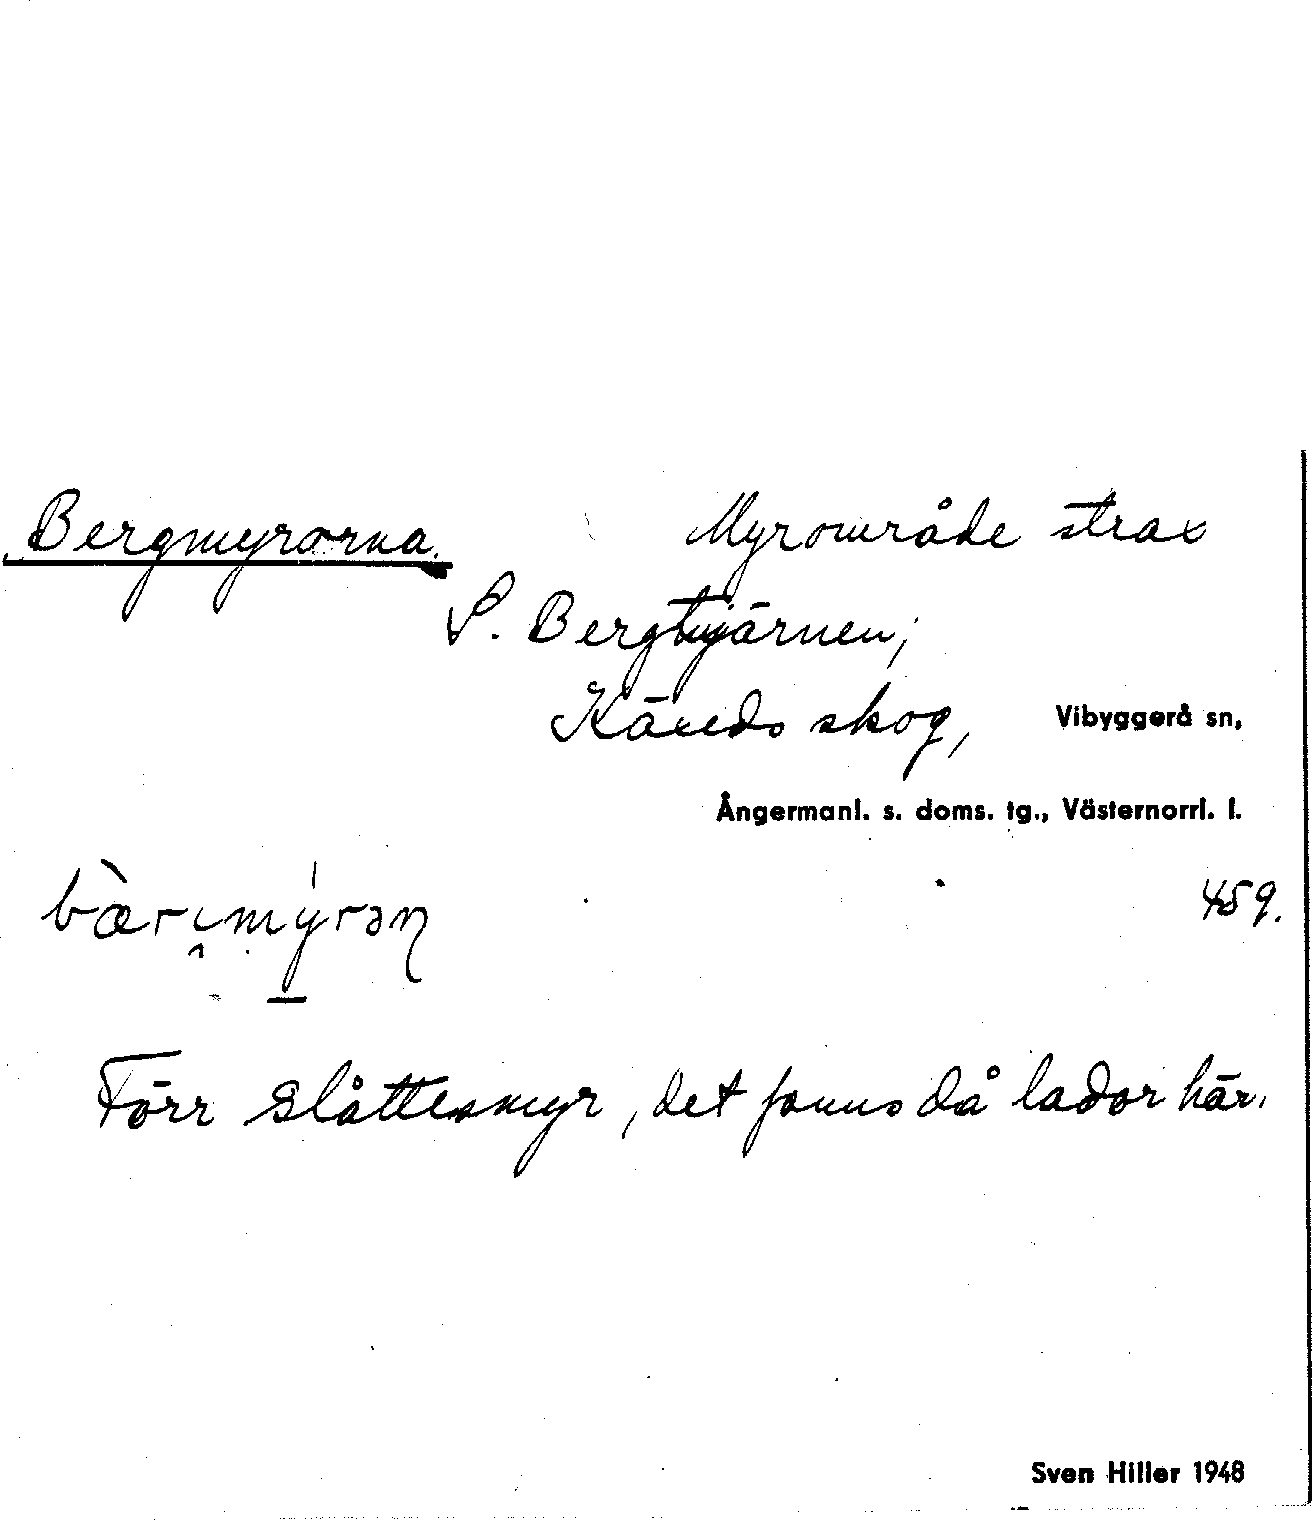 Bergmyrorna. Myrområde strax
S. Bergtjärnen;
Käxeds skog, Vibyggerå sn,
Ångermanl. s. doms. tg., Västernorrl. l.
459.
Förr slåttesmyr, det fanns då lador här.
Sven Hiller 1948